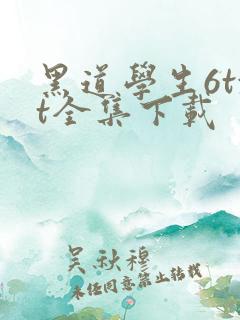 黑道學生6tx
t全集下載
吴秋穆
未经同意禁止转载